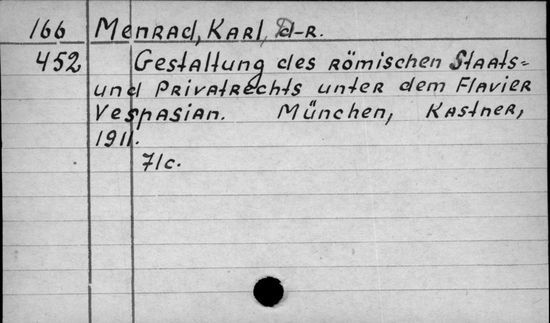 166 Menrad, Karl, D-r.
452 Gestaltung des römischen Staats-
und Privatrechts unter dem Flavier
Vespasian. München, Kastner,
1911.
71c.